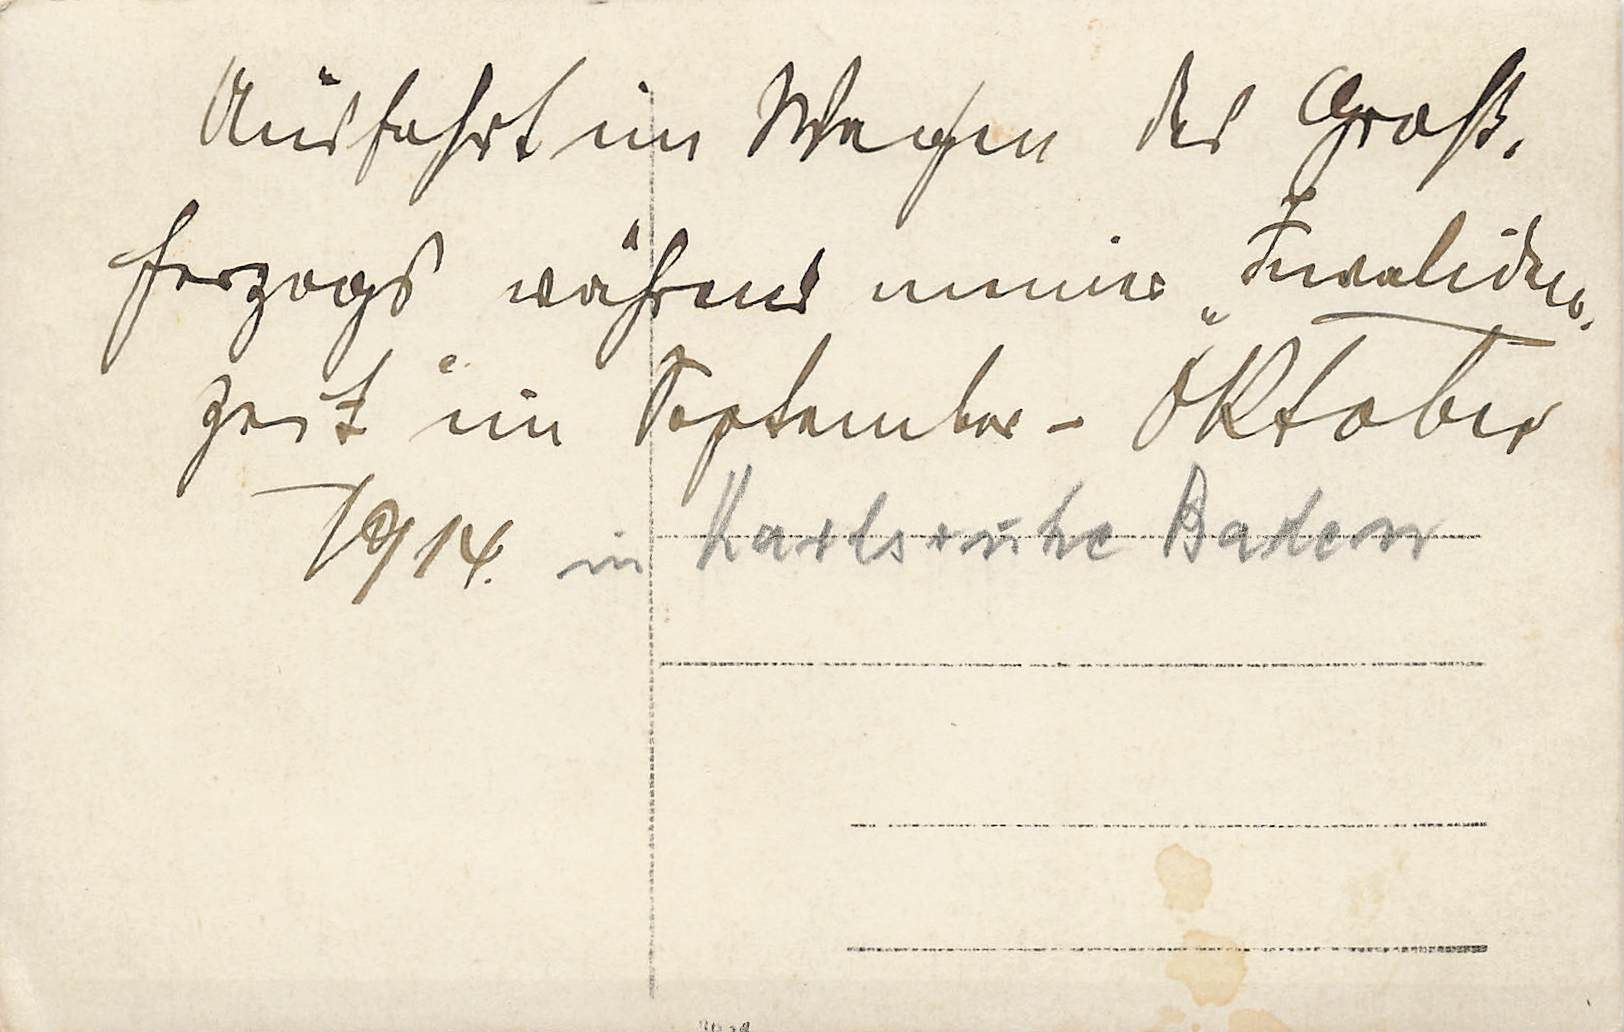 Ausfahrt im Wagen des Groß-
herzogs während meiner „Invaliden-
zeit" im September - Oktober
1914. in Karlsruhe Baden